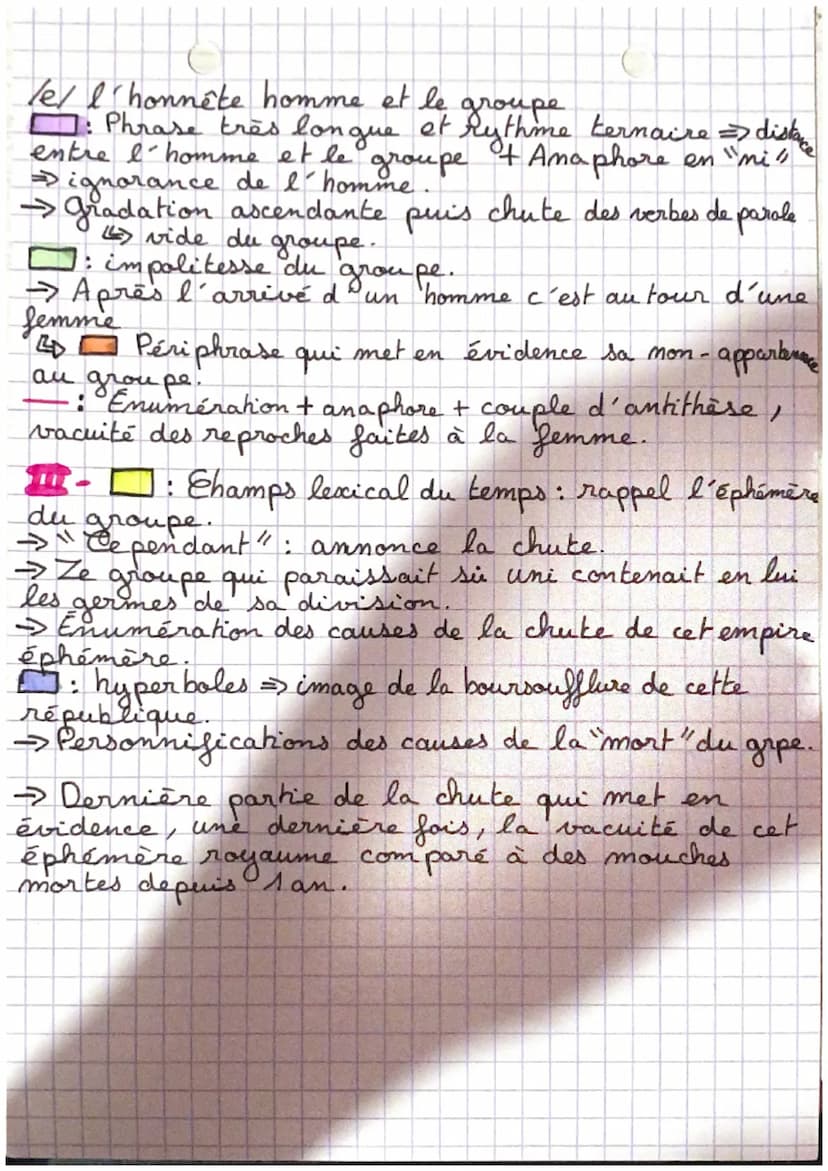 /e/ l'honnête homme et le groupe
: Phrase très longue et Rythme ternaire => distance
entre l'homme et le groupe + Anaphore en "mi"
=> ignorance de l'homme.
→ Gradation ascendante puis chute des verbes de parole
↳ vide du groupe.
: impolitesse du groupe.
→ Après l'arrivé d'un homme c'est au tour d'une
femme
↳ Périphrase qui met en évidence sa non-appartenance
au groupe.
: Énumération + anaphore + couple d'antithèse,
vacuité des reproches faites à la femme.
III- : Champs lexical du temps : rappel l'éphémère
du groupe.
→ "Cependant" : annonce la chute.
→ Le groupe qui paraissait si uni contenait en lui
les germes de sa division.
→ Énumération des causes de la chute de cet empire
éphémère.
: hyperboles => image de la boursoufflure de cette
république.
→ Personnifications des causes de la "mort" du grpe.
→ Dernière partie de la chute qui met en
évidence, une dernière fois, la vacuité de cet
éphémère royaume comparé à des mouches
mortes depuis 1 an.